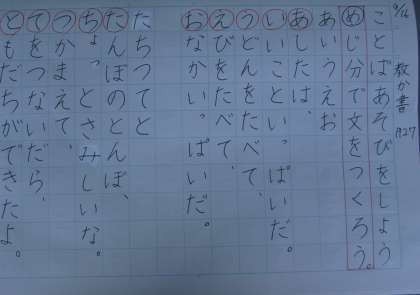 9/14
教か書 P27
ことばあそびをしよう
めじ分で文をつくろう。
あいうえお
あしたは、
いいこといっぱいだ。
うどんをたべて、
えびをたべて、
おなかいっぱいだ。
たちつてと
たんぼのとんぼ、
ちょっとさみしいな。
つかまえて、
てをつないだら、
ともだちができたよ。